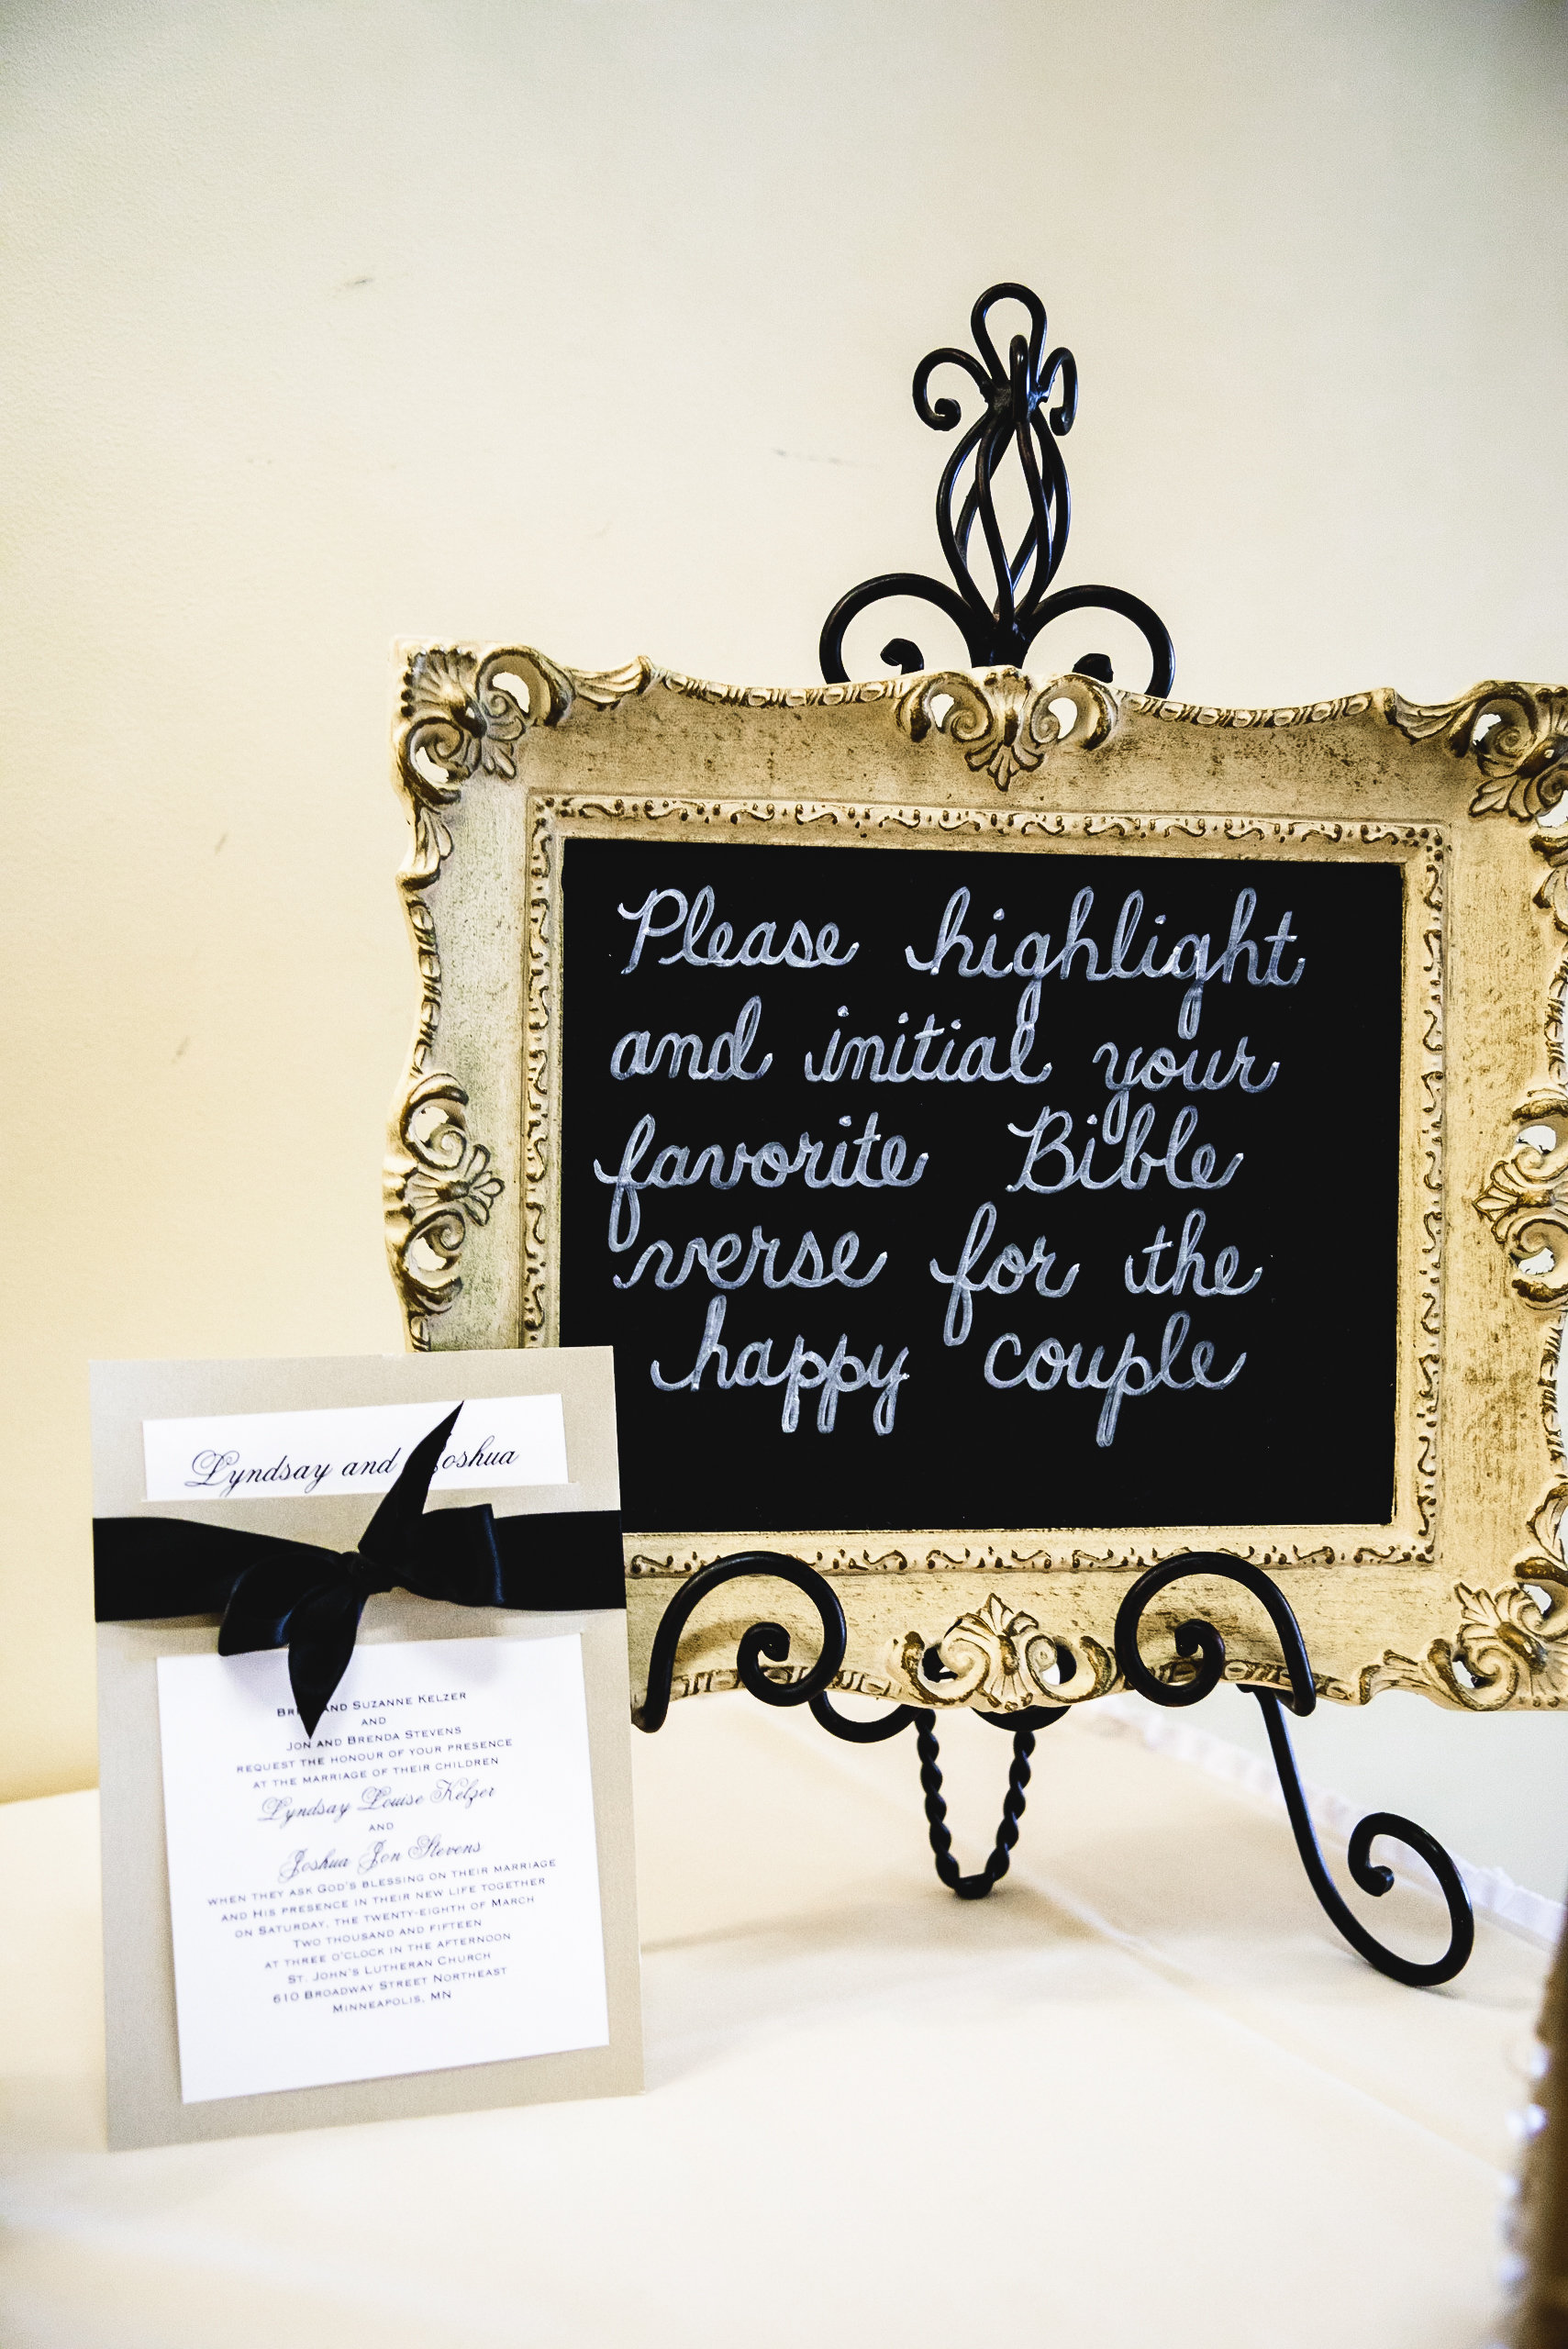 Please highlight
and initial your
favorite Bible
verse for the
happy couple
Lyndsay and
AND SUZANNE KELZER
AND
JON AND BRENDA STEVENS
REQUEST THE HONOUR OF YOUR PRESENCE
AT THE MARRIAGE OF THEIR CHILDREN
Lyndsay Louise Kelzer
AND
Joshua Jon Stevens
WHEN THEY ASK GOD'S BLESSING ON THEIR MARRIAGE
AND HIS PRESENCE IN THEIR NEW LIFE TOGETHER
ON SATURDAY, THE TWENTY-EIGHTH OF MARCH
TWO THOUSAND AND FIFTEEN
AT THREE O'CLOCK IN THE AFTERNOON
ST. JOHN'S LUTHERAN CHURCH
610 BROADWAY STREET NORTHEAST
MINNEAPOLIS, MN